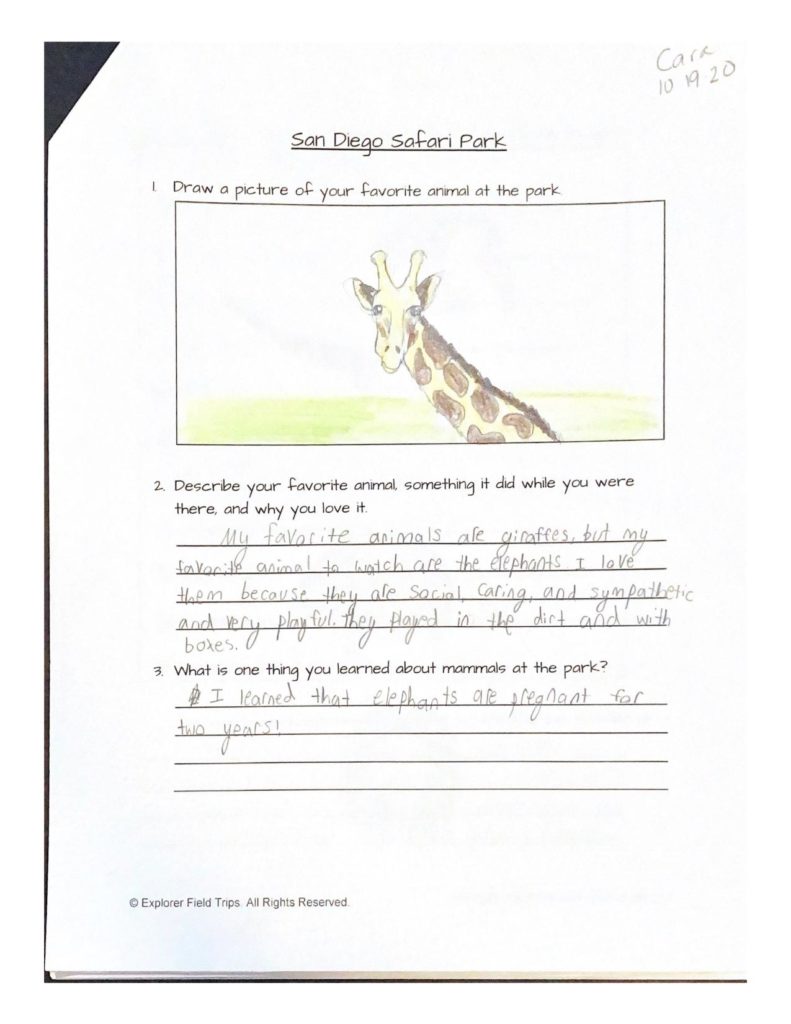 Cara
10 19 20
San Diego Safari Park
1. Draw a picture of your favorite animal at the park.
2. Describe your favorite animal, something it did while you were
there, and why you love it.
My favorite animals are giraffes, but my
favorite animal to watch are the elephants I love
them because they are social, caring, and sympathetic
and very playful. They played in the dirt and with
boxes.
3. What is one thing you learned about mammals at the park?
I learned that elephants are pregnant for
two years!
© Explorer Field Trips. All Rights Reserved.